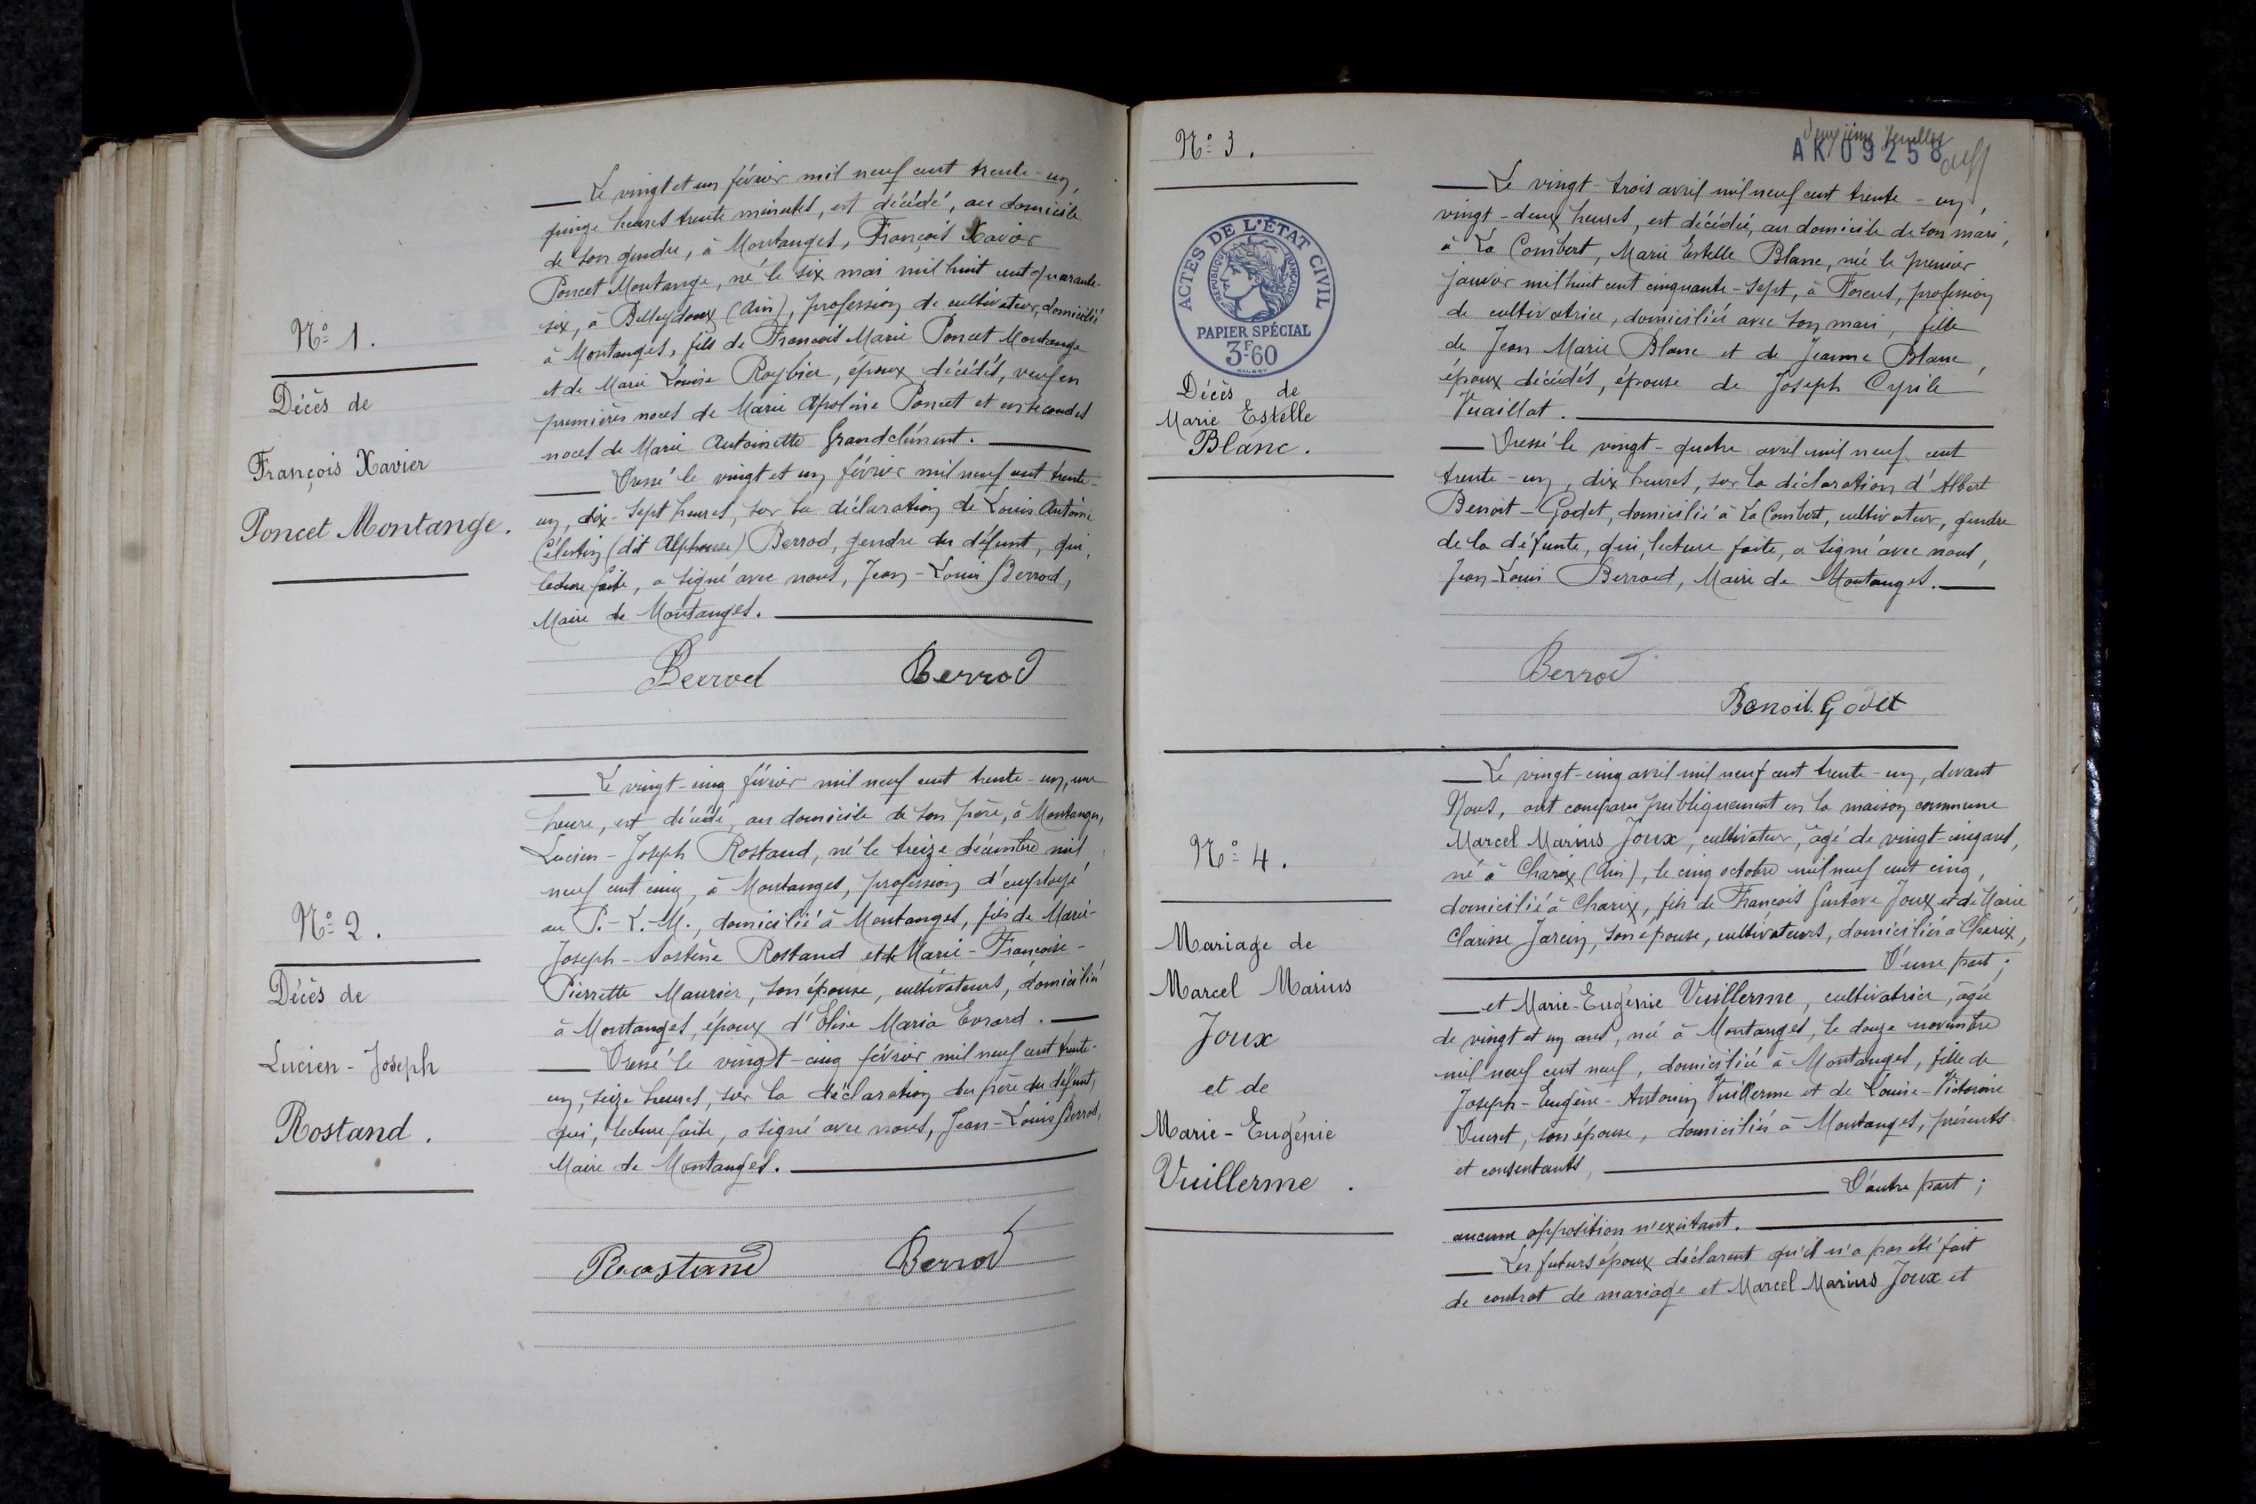 N° 1.
Décès de
François Xavier
Poncet Montange.
Le vingt et un février mil neuf cent trente-un,
quinze heures trente minutes, est décédé, au domicile
de son gendre, à Montanges, François Xavier
Poncet Montange, né le six mai mil huit cent quarante-
six, à Belleydoux (Ain), profession de cultivateur, domicilié
à Montanges, fils de François Marie Poncet Montange
et de Marie Louise Roybier, époux décédés, veuf en
premières noces de Marie Apoline Poncet et en secondes
noces de Marie Antoinette Grandclément.
Dressé le vingt et un février mil neuf cent trente-
un, dix-sept heures, sur la déclaration de Louis Antoine
Célestin (dit Alphonse) Berrod, gendre du défunt, qui,
lecture faite, a signé avec nous, Jean-Louis Berrod,
Maire de Montanges.
Berrod Berrod
N° 2.
Décès de
Lucien-Joseph
Rostand.
Le vingt-cinq février mil neuf cent trente-un, une
heure, est décédé, au domicile de son père, à Montanges,
Lucien-Joseph Rostand, né le treize décembre mil
neuf cent cinq, à Montanges, profession d'employé
au P.-L.-M., domicilié à Montanges, fils de Marie-
Joseph-Sostène Rostand et de Marie-Françoise-
Pierrette Maurier, son épouse, cultivateurs, domiciliés
à Montanges, époux d'Elise Maria Evrard.
Dressé le vingt-cinq février mil neuf cent trente-
un, seize heures, sur la déclaration du père du défunt,
qui, lecture faite, a signé avec nous, Jean-Louis Berrod,
Maire de Montanges.
Roostand Berrod
deuxième feuillet
AK09258
N° 3.
ACTES DE L'ÉTAT CIVIL
RÉPUBLIQUE FRANÇAISE
PAPIER SPÉCIAL
3F60
Décès de
Marie Estelle
Blanc.
Le vingt-trois avril mil neuf cent trente-un,
vingt-deux heures, est décédée, au domicile de son mari,
à La Combert, Marie Estelle Blanc, née le premier
janvier mil huit cent cinquante-sept, à Forens, profession
de cultivatrice, domiciliée avec son mari, fille
de Jean Marie Blanc et de Jeanne Blanc,
époux décédés, épouse de Joseph Cyrile
Vuaillat.
Dressé le vingt-quatre avril mil neuf cent
trente-un, dix heures, sur la déclaration d'Albert
Benoit-Godet, domicilié à La Combert, cultivateur, gendre
de la défunte, qui, lecture faite, a signé avec nous,
Jean-Louis Berrod, Maire de Montanges.
Berrod
Benoit.Godet
N° 4.
Mariage de
Marcel Marius
Joux
et de
Marie-Eugénie
Vuillerme.
Le vingt-cinq avril mil neuf cent trente-un, devant
Nous, ont comparu publiquement en la maison commune
Marcel Marius Joux, cultivateur, âgé de vingt-cinq ans,
né à Charix (Ain), le cinq octobre mil neuf cent cinq,
domicilié à Charix, fils de François Gustave Joux et de Marie
Clarisse Jarcin, son épouse, cultivateurs, domiciliés à Charix,
D'une part;
et Marie-Eugénie Vuillerme, cultivatrice, âgée
de vingt et un ans, née à Montanges, le douze novembre
mil neuf cent neuf, domiciliée à Montanges, fille de
Joseph-Eugène-Antonin Vuillerme et de Louise-Victorine
Ducret, son épouse, domiciliés à Montanges, présents
et consentants,
D'autre part;
aucune opposition n'existant.
Les futurs époux déclarent qu'il n'a pas été fait
de contrat de mariage et Marcel Marius Joux et